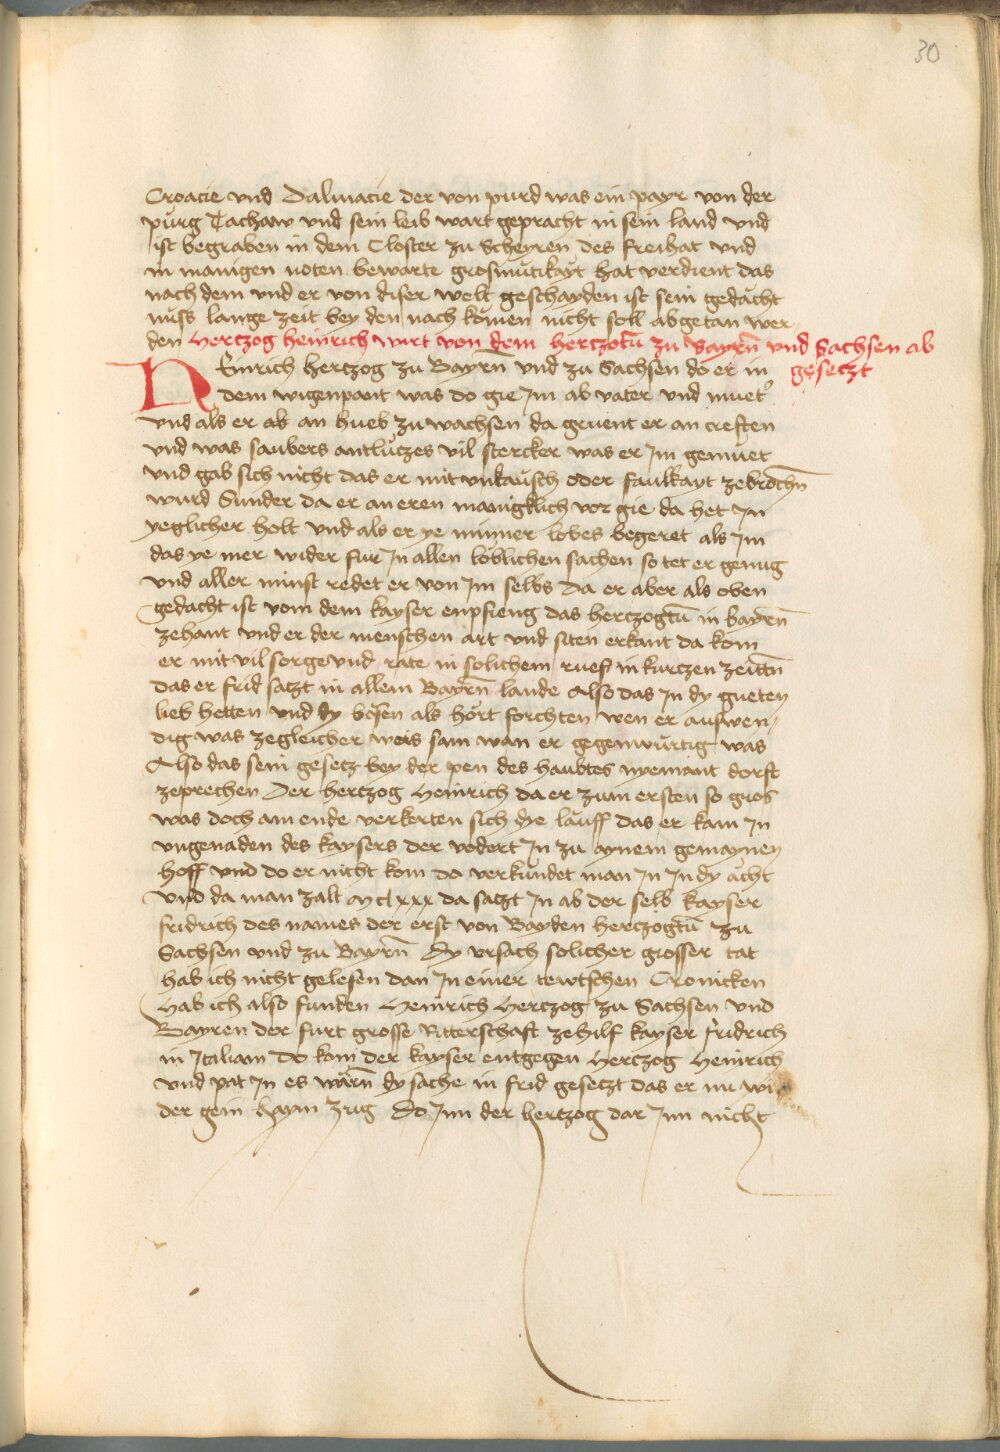 30
Croacie vnd Dalmacie der von purd was ein payr von der
purg Dachaw vnd sein leib wart gepracht in sein land vnd
ist begraben in dem Closter zu Scheyren des freihat vnd
in manigen noten bewarte grosmutikayt hat verdient das
nach dem vnd er von diser welt geschayden ist sein gedächt
nuss lange zeit bey den nach komen nicht soll abgetan wer
den Hertzog heinrich wirt von dem hertzotū zu Bayrn̄ vnd Sachsen ab
gesetzt
HEinrich hertzog zu Bayrn̄ vnd zu Sachsen do er in
dem wigenpant was do gie Im ab vater vnd muet͛
vnd als er ab an hueb zu wachsen da gruent er an creften
vnd was saubers antlutzes vil stercker was er Im gemuet
vnd gab sich nicht das er mit vnkausch oder faulkayt zebrochn̄
wurd Sunder da er an eren manigklich vor gie da het In
yeglicher holt vnd als er ye minner lobes begeret als Im
das ye mer wider fur In allen loblichen sachen so tet er genug
vnd aller minst redet er von Im selbs Da er aber als oben
gedacht ist vom dem kayser enpfieng das hertzogtū in bayrn̄
zehant vnd er der menschen art vnd siten erkant da kom
er mit vil sorge vnd rate in solichem rueff in kurczen zeittn̄
das er frid satzt in allem Bayrn̄ lande Also das In dy gueten
lieb hetten vnd dy bösen als hört forchten wen er auswen
dig was zegleicher weis sam wan er gegenwurtig was
Also das sein gesetz bey der pen des haubtes nyemant dorft
zeprechen Der hertzog Heinrich da er zum ersten so gros
was doch am ende verkerten sich dye läuff das er kam In
vngenaden des kaysers der vodert In zu aynem gemaynen
hoff vnd do er nicht kom do verkundet man In In dy ächt
vnd da man zalt Mclxxx da satzt In ab der selb kayser
fridrich des names der erst von Bayden hertzogtū zu
Sachsen vnd zu Bayrn̄ Dy vrsach solicher grosser tat
hab ich nicht gelesen dan In einer tewtschen Cronicken
Hab ich also funden Heinrich Hertzog zu Sachsen vnd
Bayren der furt grosse Ritterschaft zehilf kayser fridrich
in Italiam Do kom der kayser entgegen Hertzog Heinrich
vnd pat In es wärn̄ dy sache in frid gesetzt das er nu wi
der gein haym zug Do Inn der hertzog dar Inn nicht